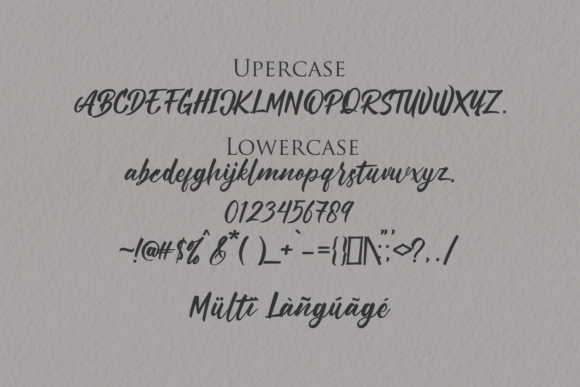 Upercase
ABCDEFGHIJKLMNOPQRSTUVWXYZ.
Lowercase
abcdefghijklmnopqrstuvwxyz.
0123456789
~!@#$%^&*()_+`-={}[]|\:";'<>?,./
Mültï Làñgúãgé